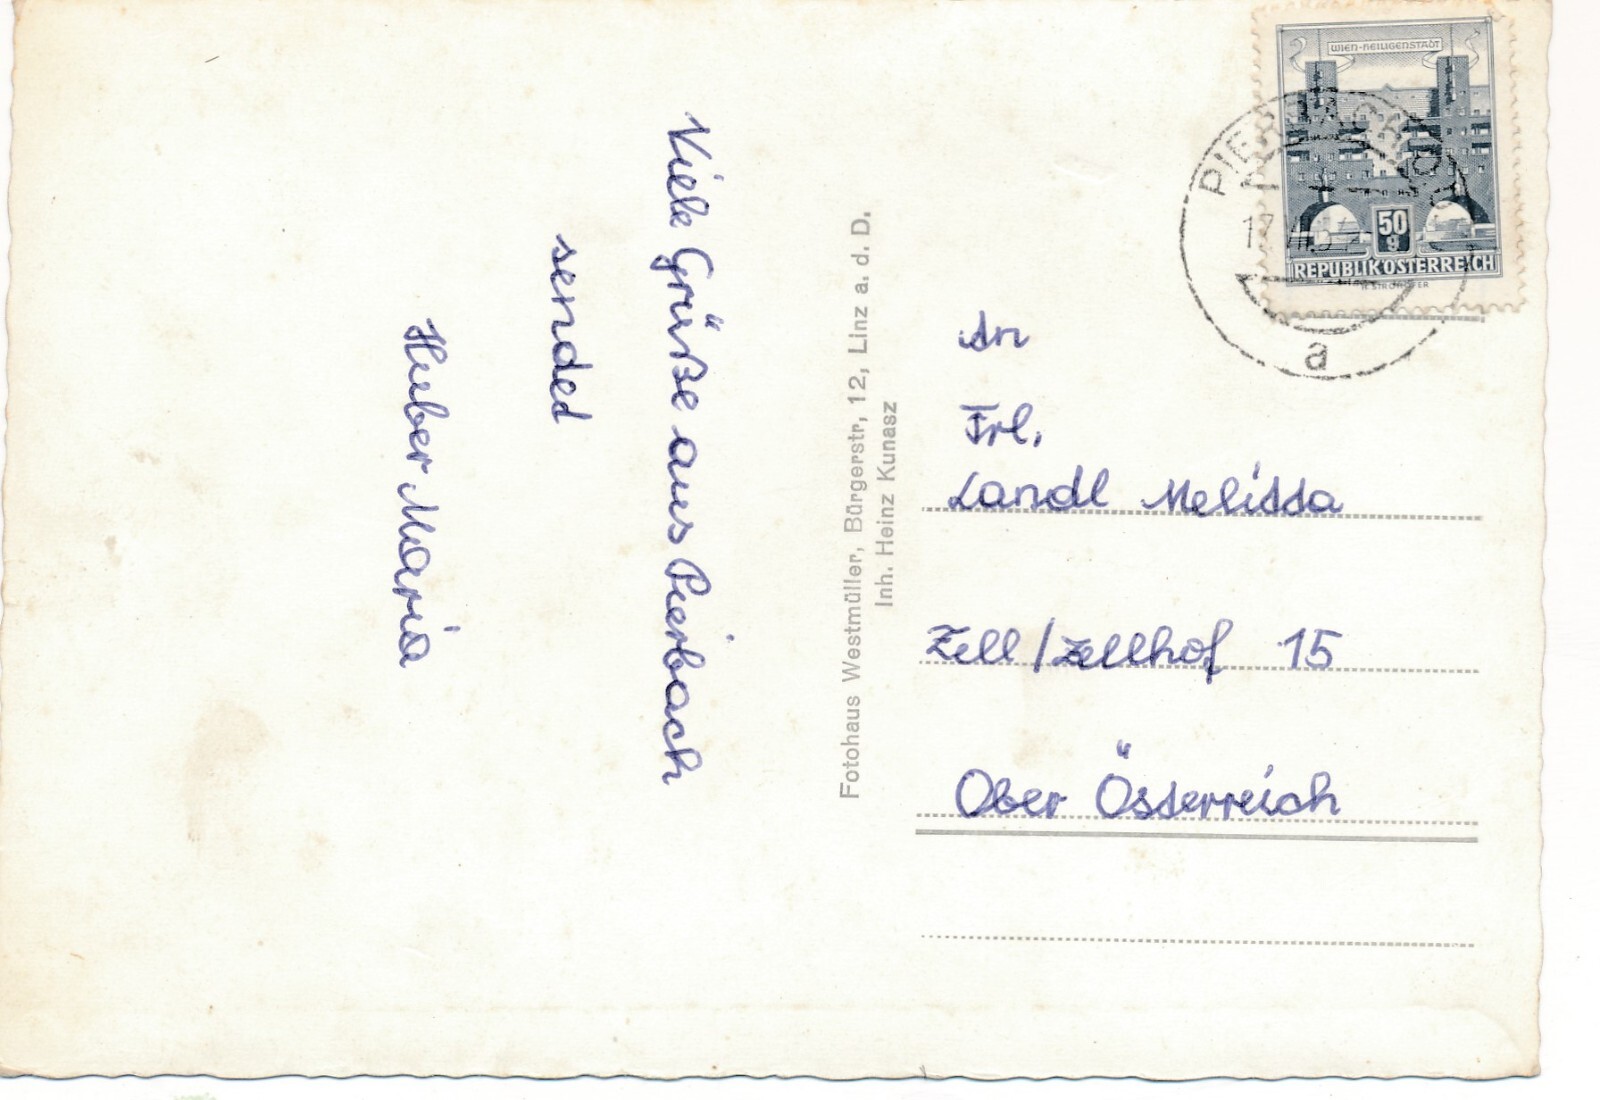 Viele Grüße aus Pierbach
sended
Huber Maria
Fotohaus Westmüller, Bürgerstr, 12, Linz a. d. D.
Inh. Heinz Kunasz
WIEN-HEILIGENSTADT
50
g
REPUBLIK ÖSTERREICH
H. STROHOFER
a
An
Frl.
Landl Melissa
Zell/Zellhof 15
Ober Österreich